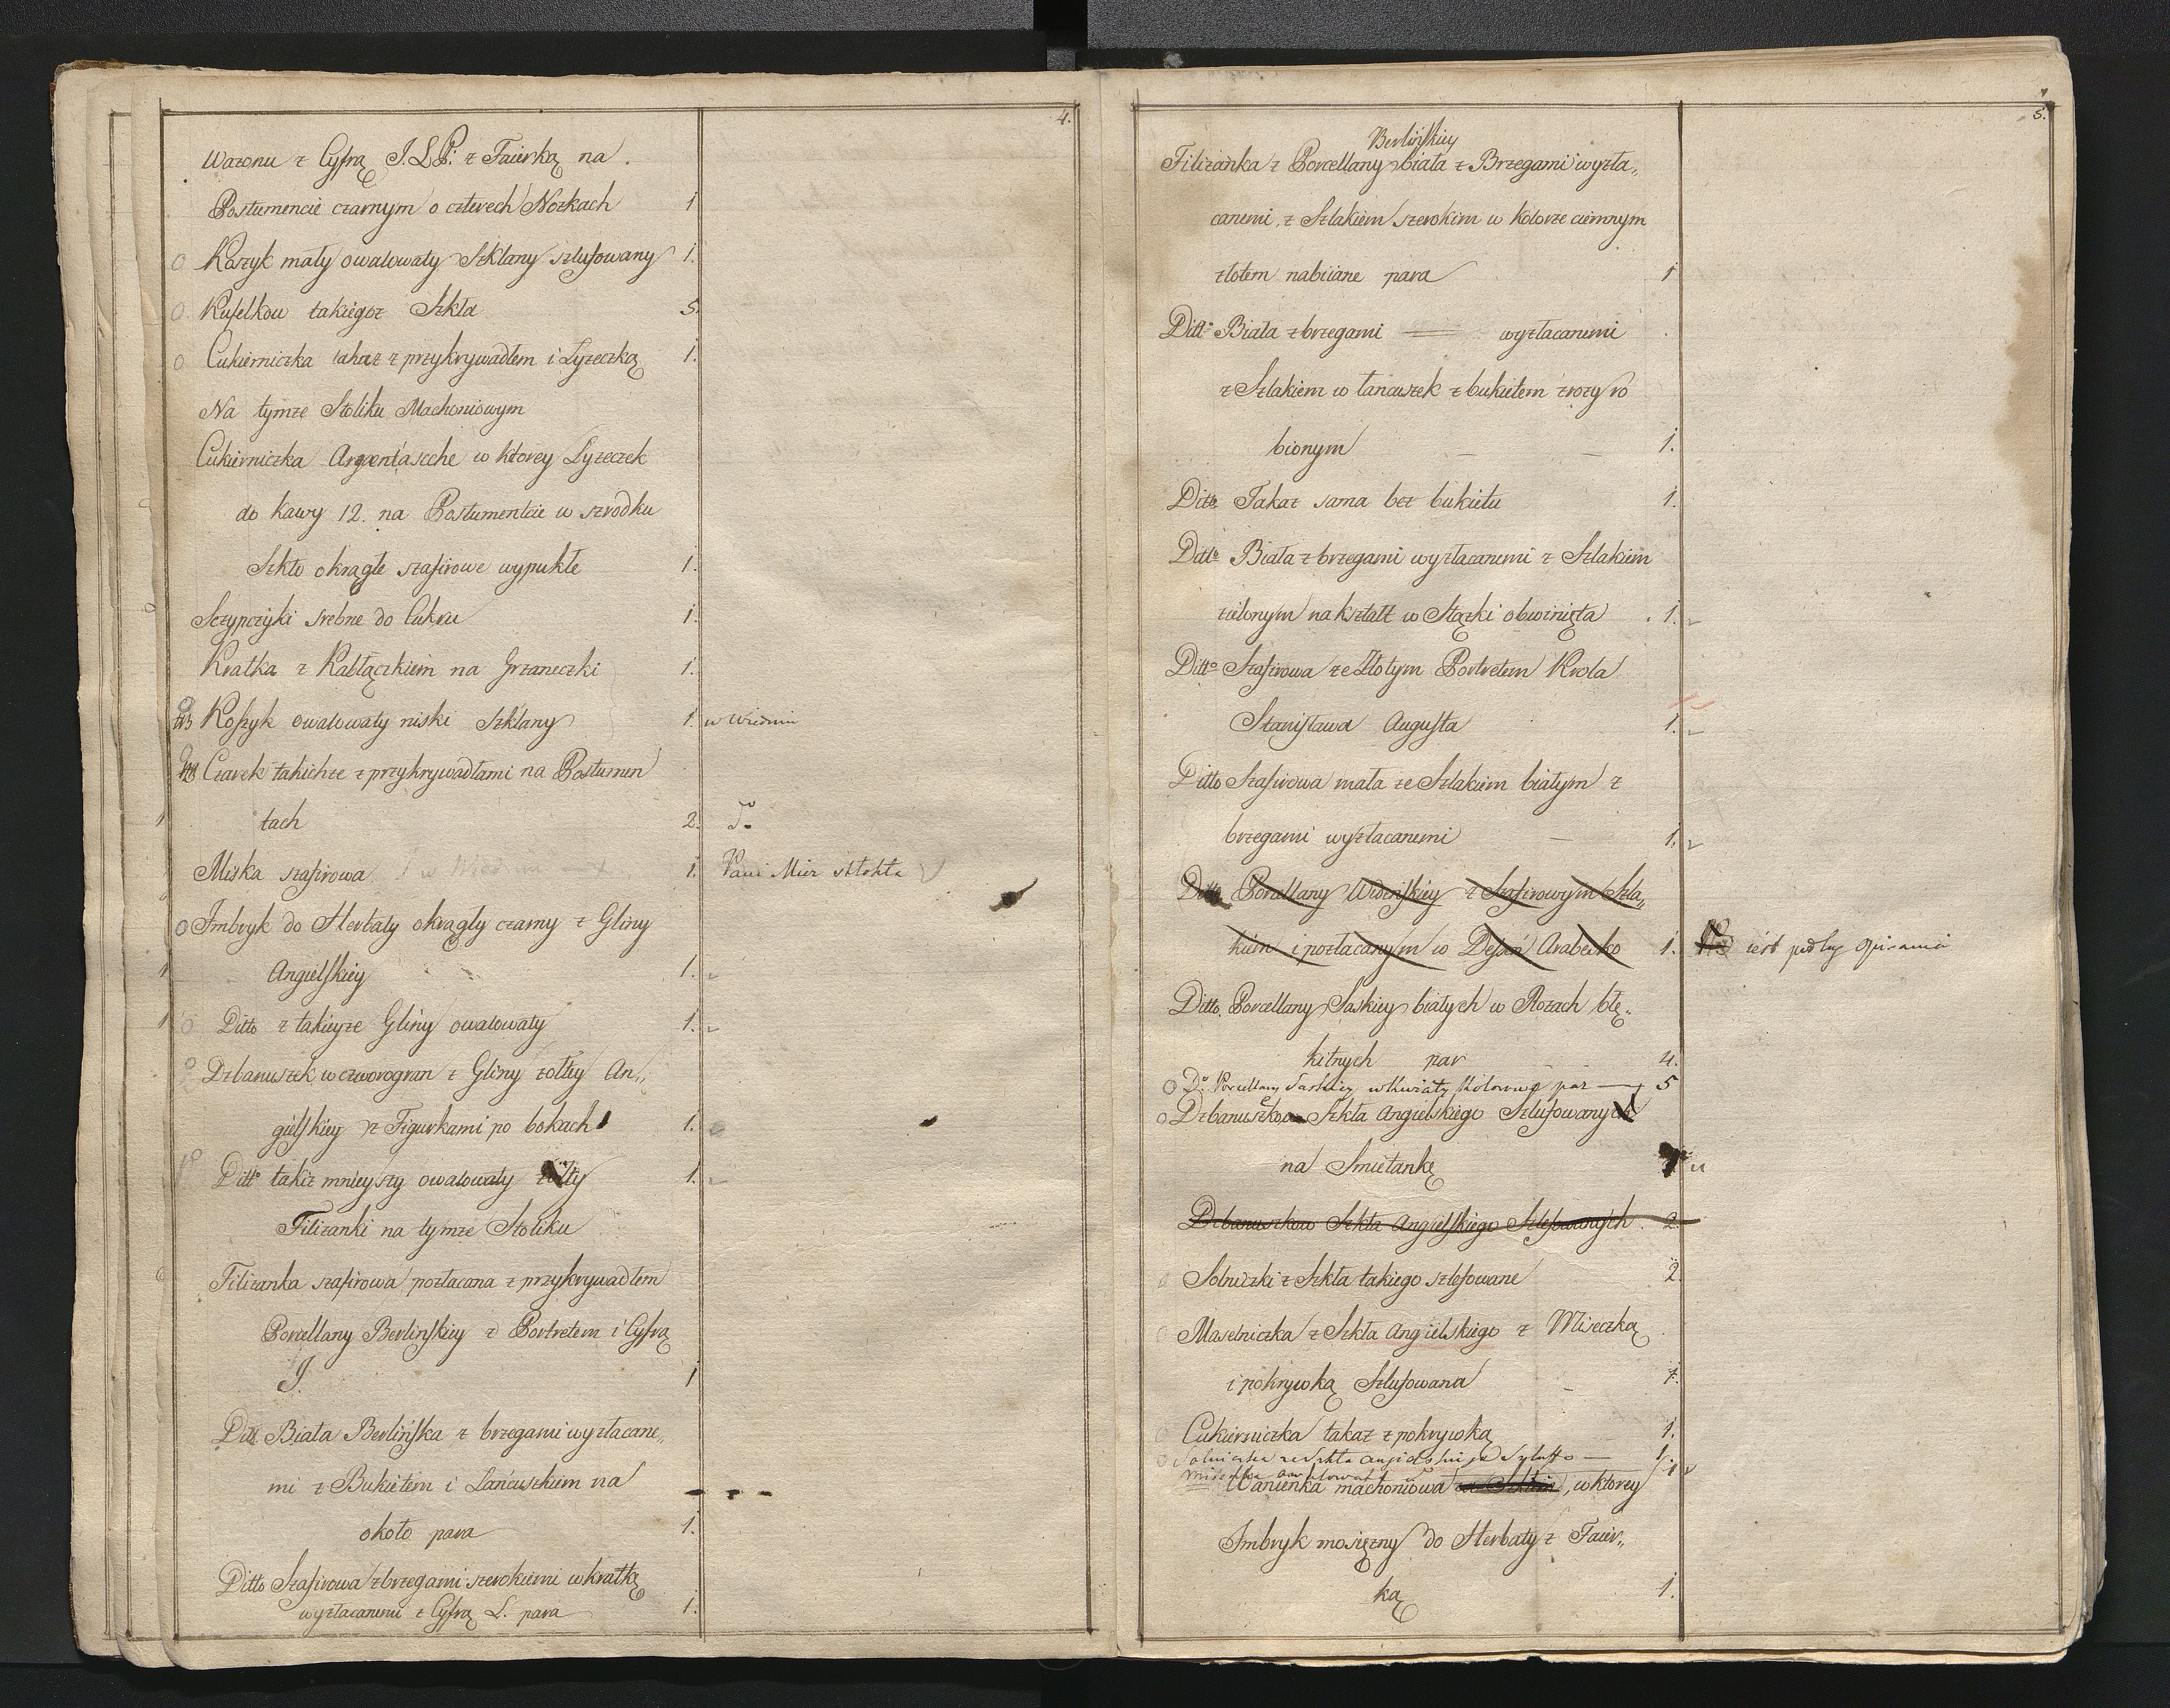 4.
Wazonu z Cyfrą J. L. P: z Faierką na
Postumencie czarnym o czterech Nozkach 1
o Koszyk mały owalowaty Szklany szlufowany 1.
o Kufelkow takiegoz Szkła 5.
o Cukierniczka takaz z przykrywadłem i Lyzeczką 1.
Na tymze Stoliku Machoniowym
Cukierniczka Argentasche w ktorey Lyzeczek
do kawy 12. na Postumencie w szrodku
Szkło okrągłe szafirowe wypukłe 1.
Sczypczyki srebne do Cukru 1.
Kratka z Kabłączkiem na Grzaneczki 1.
Koszyk owalowaty niski Szklany 1. w Wiedniu
Czarek takichze z przykrywadłami na Postumen
tach 2. do
Miska szafirowa 1. Pani Mier
o Imbryk do Herbaty okrągły czarny z Gliny
Angielskiey 1.
o Ditto z takieyze Gliny owalowaty 1.
o Dzbanuszek w czworogran z Gliny zołtey An„
gielskiey z Figurkami po bokach 1.
Ditto takiz mnieyszy owalowaty zołty 1.
Filizanki na tymze Stoliku
Filizanka szafirowa pozłacana z przykrywadłem
Porcellany Berlinskiey z Portretem i Cyfrą
J. 1
Ditt Biała Berlińska z brzegami wyzłacane„
mi z Bukietem i Łańcuszkiem na
około para 1.
Ditto Szafirowa z brzegami szerokiemi w kratkę
wyzłacanemi z Cyfrą L. para 1.
5.
Berlińskiey
Filizanka z Porcellany biała z Brzegami wyzła„
canemi, z Szlakiem szerokim w kolorze ciemnym
złotem nabiiane para 1
Ditto Biała z brzegami wyzłacanemi
z Szlakiem w łancuszek z bukietem z rozy ro
bionym 1.
Ditto Takaz sama bez bukietu 1.
Ditto Biała z brzegami wyzłacanemi z Szlakiem
zielonym na kształt w Stązki obwinięta 1.
Ditto Szafirowa ze Złotym Portretem Krola
Stanisława Augusta 1.
Ditto Szafirowa mała ze Szlakiem białym z
brzegami wyzłacanemi 1.
Ditto Porcellany Widenskiey z Szafirowym Szla„
kiem i pozłacanym w Deseń Arabesko 1. iest podług Opisania
Ditto Porcellany Saskiey białych w Rozach błę„
kitnych par 4.
o Do Porcellany Saskiey w Kwiaty Kolorowe par 5
o Dzbanuszkow Szkła Angielskiego Szlufowanych
na Smietankę
Dzbanuszkow Szkła Angielskiego Szlufowanych 2.
Solniczki z Szkła takiego szlefowane 2.
Maselniczka z Szkła Angielskiego z Miseczką
i pokrywką Szlufowana 1.
o Cukierniczka takaz z pokrywką 1.
o Solniczka ze Szkła angielskiego 1.
Miseczka owalowata 1
Wanienka machoniowa, w ktorey
Imbryk mosięzny do Herbaty z Faier„
ką 1.